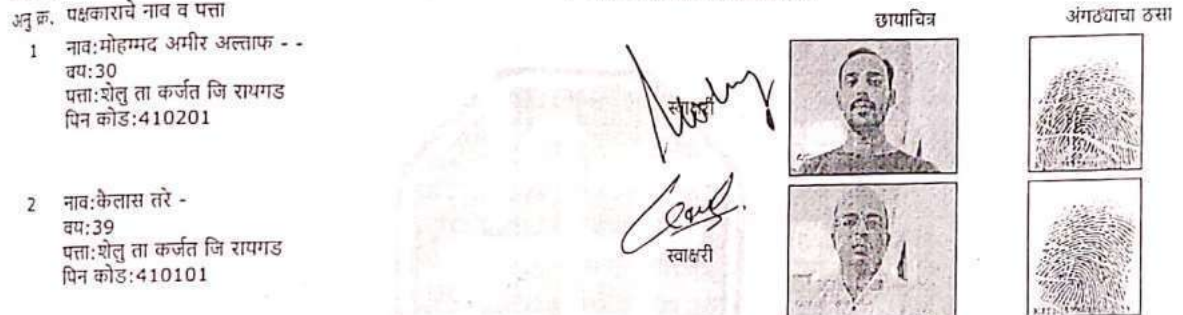 अनु क्र. पक्षकाराचे नाव व पत्ता छायाचित्र अंगठ्याचा ठसा
1 नाव:मोहम्मद अमीर अल्ताफ - -
वय:30
पत्ता:शेलु ता कर्जत जि रायगड
पिन कोड:410201
2 नाव:कैलास तरे -
वय:39
पत्ता:शेलु ता कर्जत जि रायगड
पिन कोड:410101
स्वाक्षरी